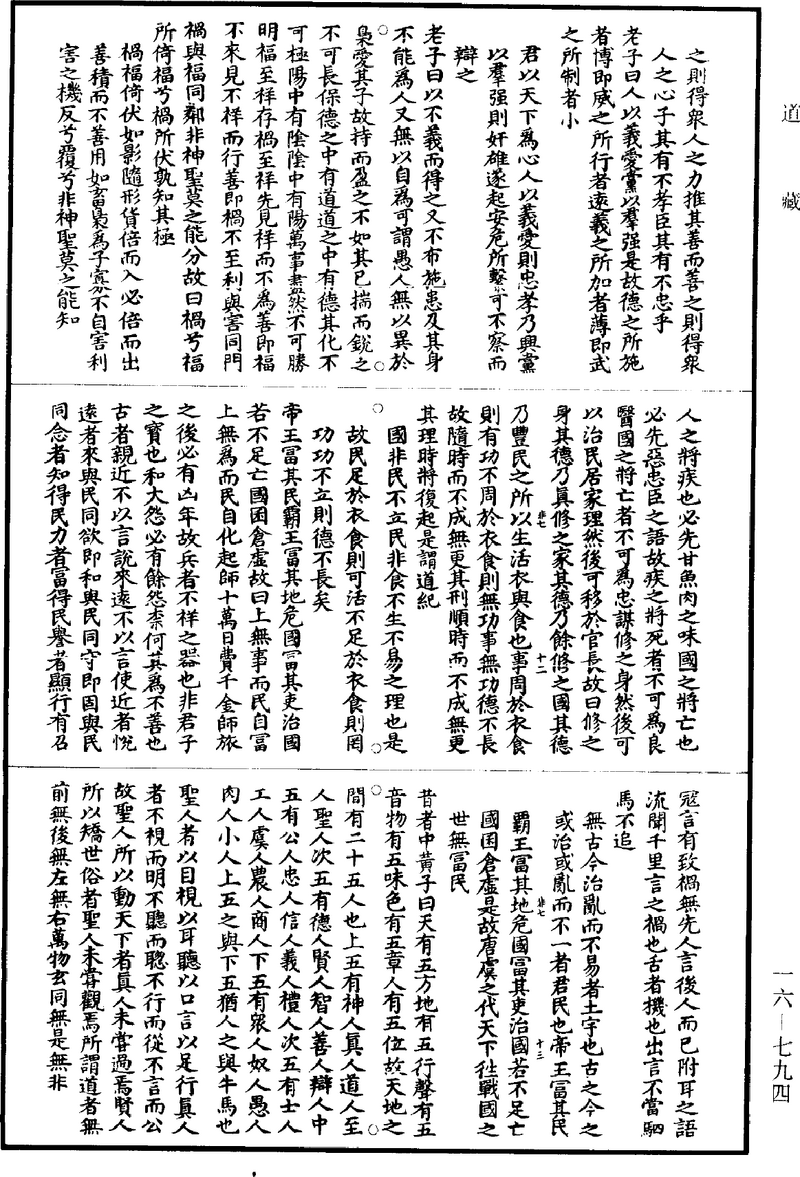 道藏
之則得衆人之力推其善而善之則得衆
人之心子其有不孝臣其有不忠乎
老子曰人以義愛黨以羣强是故德之所施
者博即威之所行者遠義之所加者薄即武
之所制者小
君以天下爲心人以義愛則忠孝乃興黨
以羣强則奸雄遂起安危所繫可不察而
辯之
老子曰以不義而得之又不布施患及其身
不能爲人又無以自爲可謂愚人無以異於
梟愛其子故持而盈之不如其已揣而銳之
不可長保德之中有道道之中有德其化不
可極陽中有陰陰中有陽萬事盡然不可勝
明福至祥存禍至祥先見祥而不爲善即福
不來見不祥而行善即禍不至利與害同門
禍與福同鄰非神聖莫之能分故曰禍兮福
所倚福兮禍所伏孰知其極
禍福倚伏如影隨形貨倍而入必倍而出
善積而不善用如畜梟爲子寡不自害利
害之機反兮覆兮非神聖莫之能知
人之將疾也必先甘魚肉之味國之將亡也
必先惡忠臣之語故疾之將死者不可爲良
醫國之將亡者不可爲忠謀修之身然後可
以治民居家理然後可移於官長故曰修之
身其德乃眞修之家其德乃餘修之國其德
乃豐民之所以生活衣與食也事周於衣食
則有功不周於衣食則無功事無功德不長
故隨時而不成無更其刑順時而不成無更
其理時將復起是謂道紀
國非民不立民非食不生不易之理也是
故民足於衣食則可活不足於衣食則罔
功功不立則德不長矣
帝王冨其民霸王冨其地危國冨其吏治國
若不足亡國困倉虛故曰上無事而民自冨
上無爲而民自化起師十萬日費千金師旅
之後必有凶年故兵者不祥之器也非君子
之寶也和大怨必有餘怨柰何其爲不善也
古者親近不以言說來遠不以言使近者悅
遠者來與民同欲即和與民同守即固與民
同念者知得民力者冨得民譽者顯行有召
寇言有致禍無先人言後人而已附耳之語
流聞千里言之禍也舌者機也出言不當駟
馬不追
無古今治亂而不易者土宇也古之今之
或治或亂而不一者君民也帝王冨其民
霸王冨其地危國冨其吏治國若不足亡
國困倉虛是故唐虞之代天下徃戰國之
世無冨民
昔者中黃子曰天有五方地有五行聲有五
音物有五味色有五章人有五位故天地之
間有二十五人也上五有神人眞人道人至
人聖人次五有德人賢人智人善人辯人中
五有公人忠人信人義人禮人次五有士人
工人虞人農人商人下五有衆人奴人愚人
肉人小人上五之與下五猶人之與牛馬也
聖人者以目視以耳聽以口言以足行眞人
者不視而明不聽而聰不行而從不言而公
故聖人所以動天下者眞人未嘗過焉賢人
所以矯世俗者聖人未甞觀焉所謂道者無
前無後無左無右萬物玄同無是無非
一六—七九四